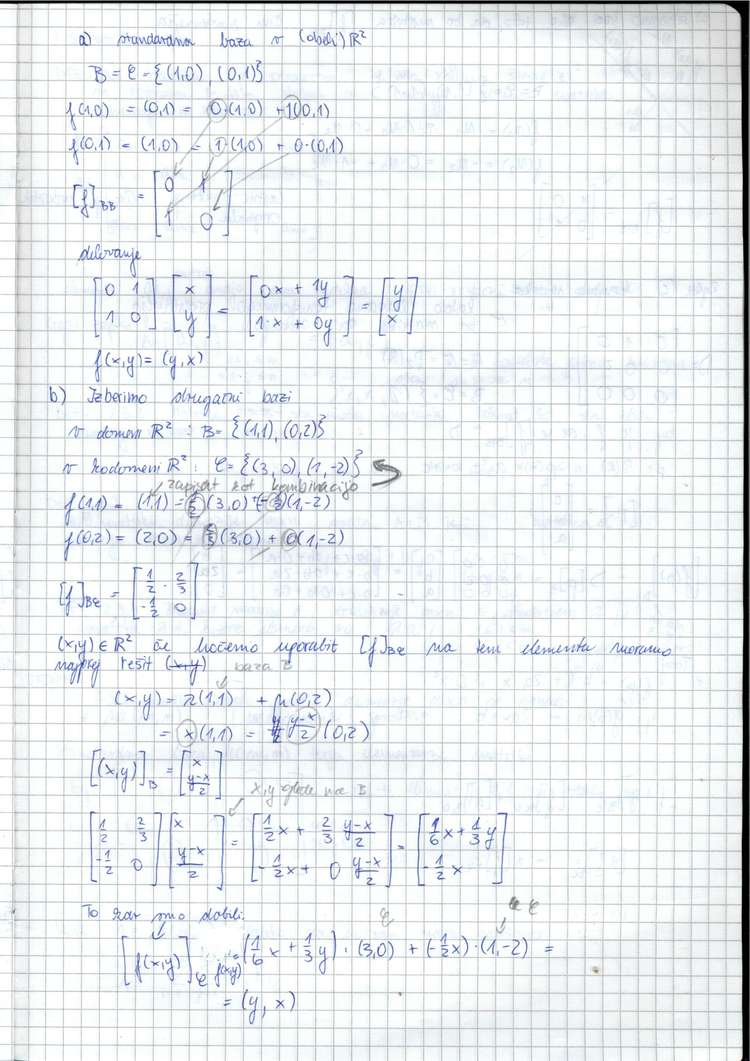 a) standardna baza v (obeh) ℝ²
B = C = {(1,0), (0,1)}
f(1,0) = (0,1) = 0·(1,0) + 1(0,1)
f(0,1) = (1,0) = 1·(1,0) + 0·(0,1)
[f]_BB = [0 1; 1 0]
delovanje
[0 1; 1 0] [x; y] = [0x + 1y; 1·x + 0y] = [y; x]
f(x,y) = (y,x)
b) Izberimo drugačni bazi
v domeni ℝ² : B = {(1,1), (0,2)}
v kodomeni ℝ² : C = {(3,0), (1,-2)}
zapisat kot kombinacijo
f(1,1) = (1,1) = 1/2 (3,0) + (-1/2)(1,-2)
f(0,2) = (2,0) = 2/3 (3,0) + 0(1,-2)
[f]_BC = [1/2 2/3; -1/2 0]
(x,y) ∈ ℝ² če hočemo uporabit [f]_BC na tem elementu moramo
najprej rešit (x,y) baza
(x,y) = λ(1,1) + μ(0,2)
= x(1,1) = (y-x)/2 (0,2)
[(x,y)]_B = [x; (y-x)/2]
x,y glede na B
[1/2 2/3; -1/2 0] [x; (y-x)/2] = [1/2 x + 2/3 (y-x)/2; -1/2 x + 0 (y-x)/2] = [1/6 x + 1/3 y; -1/2 x]
To kar smo dobili:
[f(x,y)]_C f(x,y) = (1/6 x + 1/3 y)·(3,0) + (-1/2 x)·(1,-2) =
= (y, x)